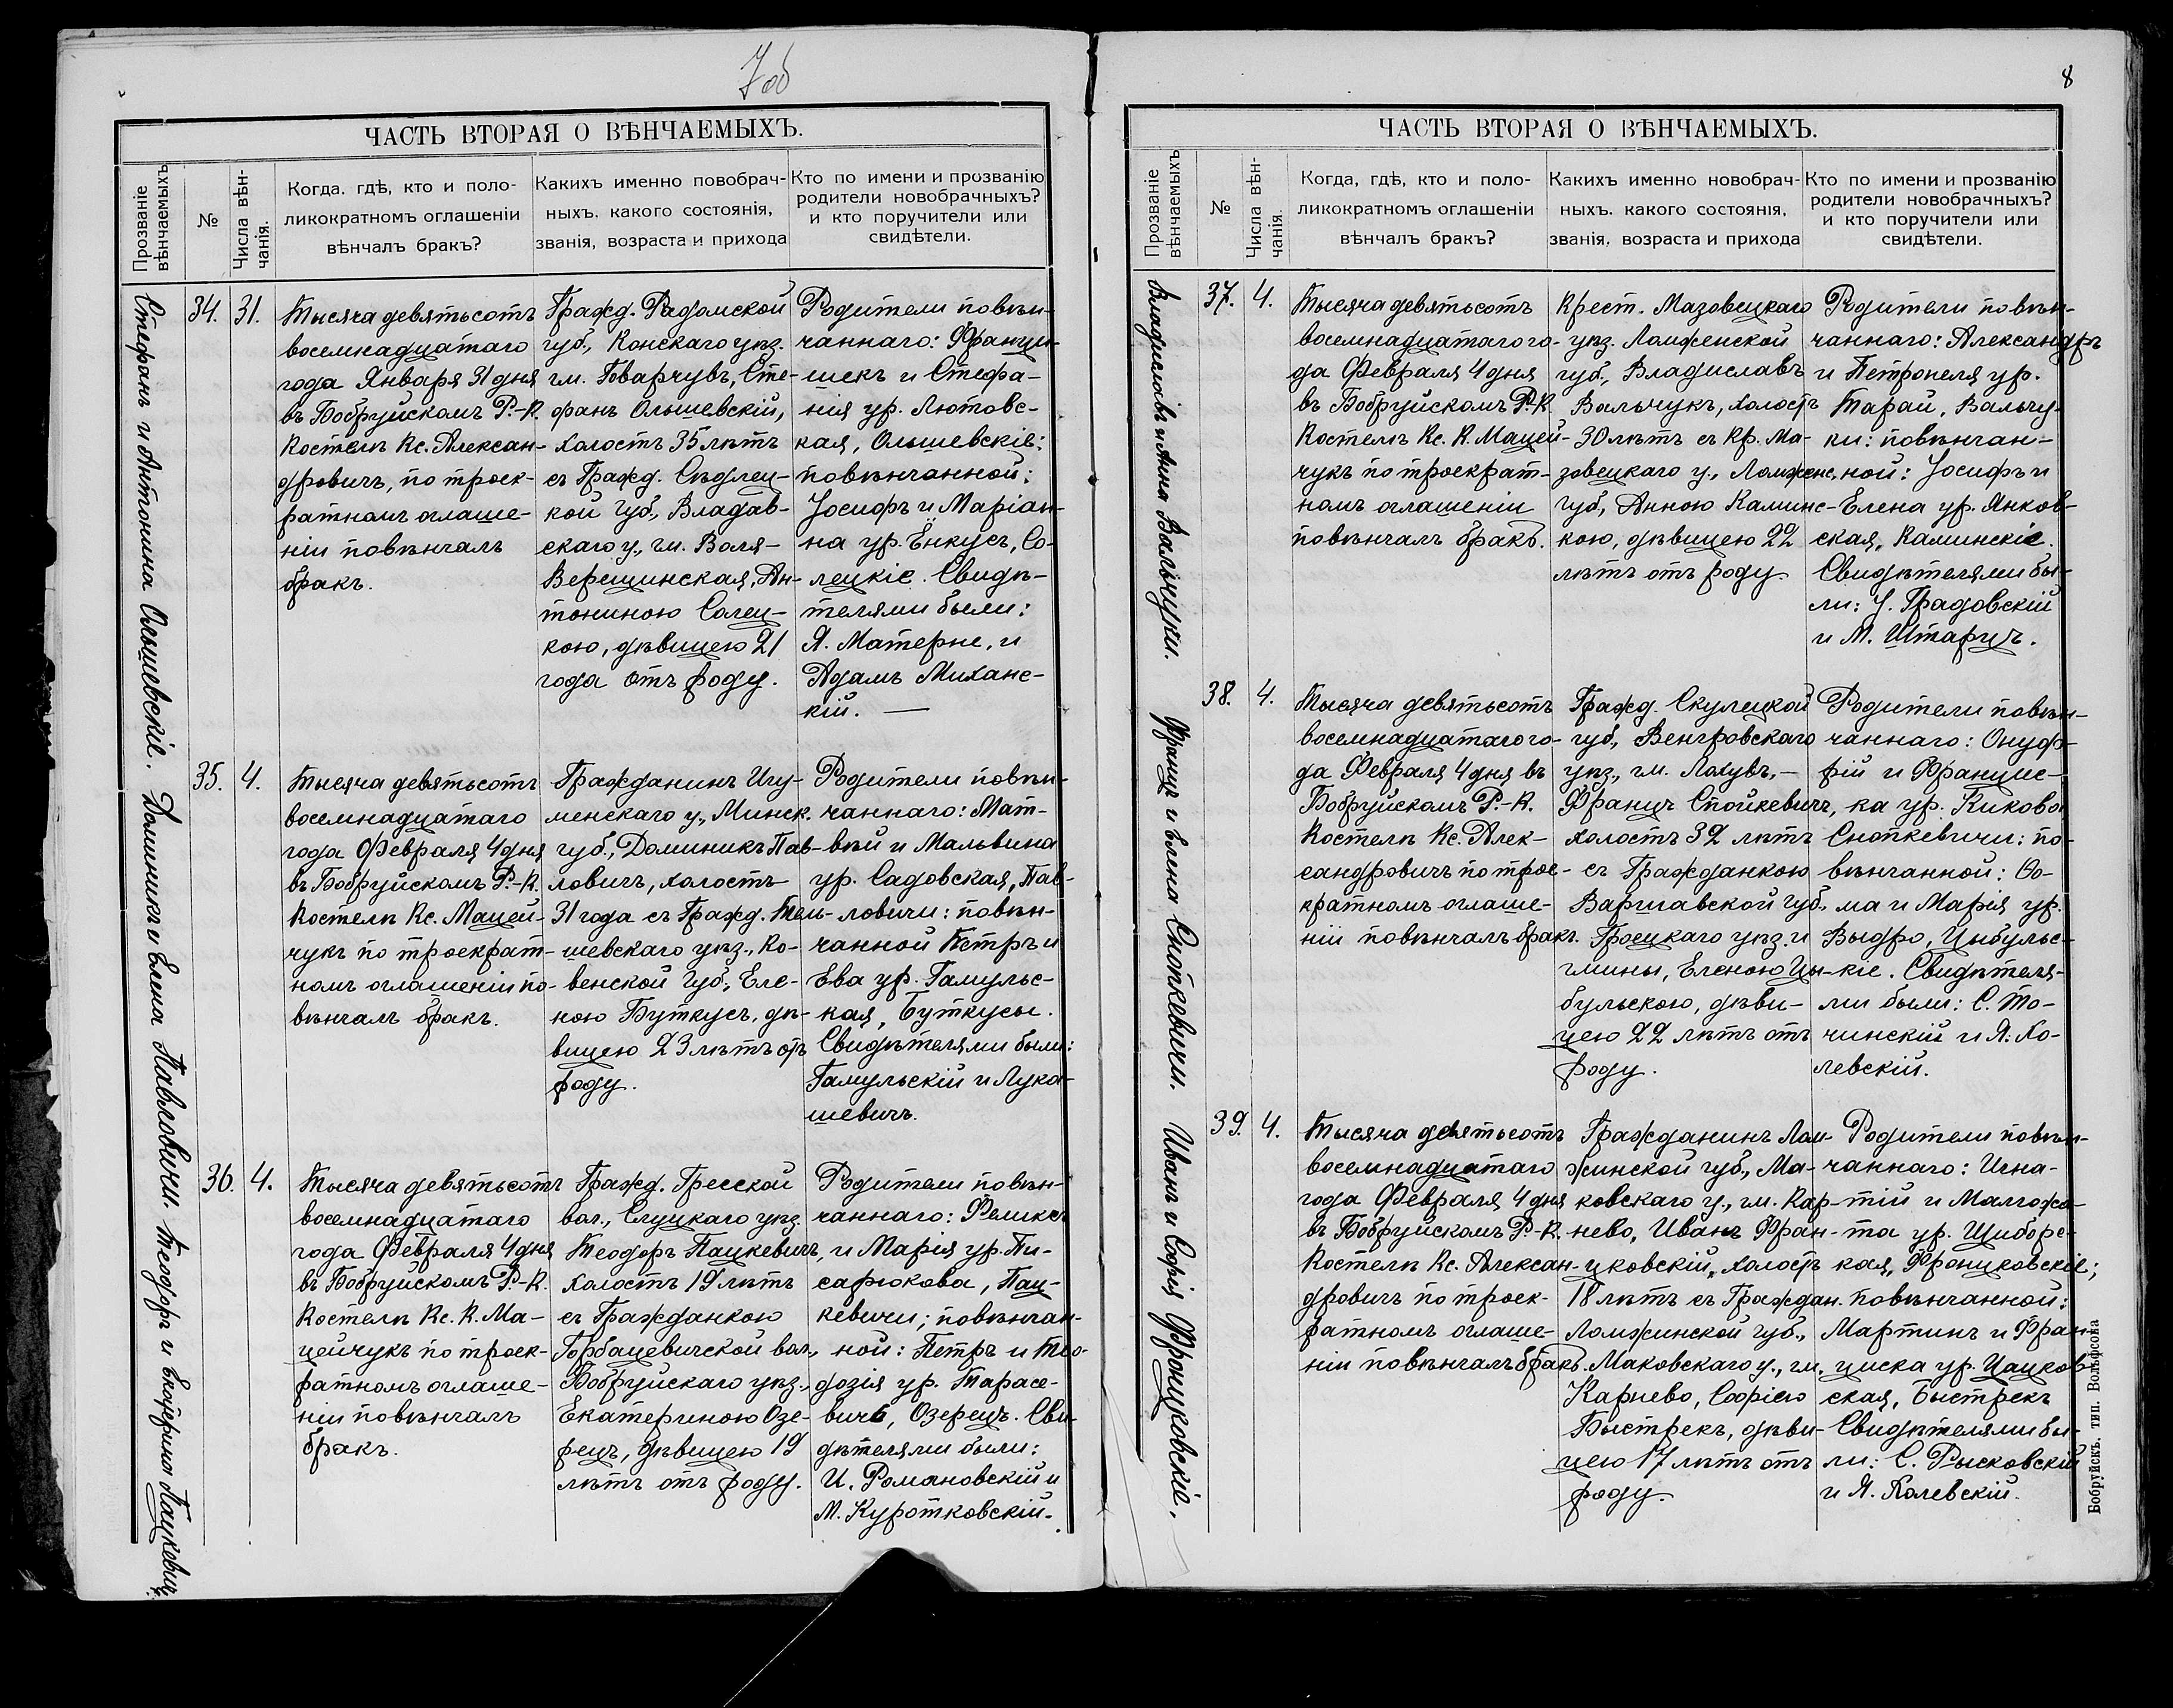 7 об
ЧАСТЬ ВТОРАЯ О ВѢНЧАЕМЫХЪ.
Прозваніе
вѣнчаемыхъ
№
Числа вѣн-
чанія.
Когда, гдѣ, кто и поло-
ликократномъ оглашеніи
вѣнчалъ бракъ?
Какихъ именно новобрач-
ныхъ, какого состоянія,
званія, возраста и прихода
Кто по имени и прозванію
родители новобрачныхъ?
и кто поручители или
свидѣтели.
Стефанъ и Антонина Ольшевскіе.
34.
31.
Тысяча девятьсотъ
восемнадцатаго
года Января 31 дня
въ Бобруйскомъ Р.-К.
Костелѣ Кс. Алексан-
дровичъ, по троек-
ратномъ оглаше-
ніи повѣнчалъ
бракъ.
Гражд. Радомской
губ., Конскаго уѣз.
гм. Говарчувъ, Сте-
фанъ Ольшевскій,
холостъ 35 лѣтъ
съ Гражд. Сѣдлец-
кой губ., Владав-
скаго у., гм. Воля-
Верещинская, Ан-
тониною Солец-
кою, дѣвицею 21
года отъ роду.
Родители повѣн-
чаннаго: Франци-
шекъ и Стефа-
нія ур. Лютовс-
кая, Ольшевскіе:
повѣнчанной:
Іосифъ и Маріан-
на ур. Енкусъ, Со-
лецкіе. Свидѣ-
телями были:
Я. Матерне, и
Адамъ Миханс-
кій. —
Доминикъ и Елена Павловичи.
35.
4.
Тысяча девятьсотъ
восемнадцатаго
года Февраля 4 дня
въ Бобруйскомъ Р.-К.
Костелѣ Кс. Мацей-
чукъ по троекрат-
номъ оглашеніи по-
вѣнчалъ бракъ.
Гражданинъ Игу-
менскаго у., Минск.
губ., Доминикъ Пав-
ловичъ, холостъ
31 года съ Гражд. Тель-
шевскаго уѣз., Ко-
венской Губ., Еле-
ною Буткусъ, дѣ-
вицею 23 лѣтъ отъ
роду.
Родители повѣн-
чаннаго: Мат-
вѣй и Мальвина
ур. Садовская, Пав-
ловичи: повѣн-
чанной Петръ и
Ева ур. Гамульс-
кая, Буткусы.
Свидѣтелями были:
Гамульскій и Лука-
шевичъ.
Теодоръ и Екатерина Пацкевичи
36.
4.
Тысяча девятьсотъ
восемнадцатаго
года Февраля 4 дня
въ Бобруйскомъ Р.-К.
Костелѣ Кс. К. Ма-
цейчукъ по троек-
ратномъ оглаше-
ніи повѣнчалъ
бракъ.
Гражд. Гресской
вол., Слуцкаго уѣз.
Теодоръ Пацкевичъ,
холостъ 19 лѣтъ
съ Гражданкою
Горбацевичской вол.,
Бобруйскаго уѣз.,
Екатериною Озе-
рецъ, дѣвицею 19
лѣтъ отъ роду.
Родители повѣн-
чаннаго: Феликсъ
и Марія ур. Пи-
сарюкова, Пац-
кевичи; повѣнчан-
ной: Петръ и Тео-
дозія ур. Тарасе-
вичъ, Озерецъ. Сви-
дѣтелями были:
И. Романовскій и
М. Куротковскій.
8
ЧАСТЬ ВТОРАЯ О ВѢНЧАЕМЫХЪ.
Прозваніе
вѣнчаемыхъ
№
Числа вѣн-
чанія.
Когда, гдѣ, кто и поло-
ликократномъ оглашеніи
вѣнчалъ бракъ?
Какихъ именно новобрач-
ныхъ, какого состоянія,
званія, возраста и прихода
Кто по имени и прозванію
родители новобрачныхъ?
и кто поручители или
свидѣтели.
Владиславъ и Анна Вальчуки.
37.
4.
Тысяча девятьсотъ
восемнадцатаго го-
да Февраля 4 дня
въ Бобруйскомъ Р.-К.
Костелѣ Кс. К. Мацей-
чукъ по троекрат-
номъ оглашеніи
повѣнчалъ бракъ.
Крест. Мазовецкаго
уѣз. Ломженской
губ., Владиславъ
Вальчукъ, холостъ
30 лѣтъ съ Кр. Ма-
зовецкаго у., Ломженс.
губ., Анною Каминс-
кою, дѣвицею 22
лѣтъ отъ роду.
Родители повѣн-
чаннаго: Александръ
и Петронеля ур.
Тарай, Вальчу-
ки: повѣнчан-
ной: Іосифъ и
Елена ур. Янков-
ская, Каминскіе.
Свидѣтелями бы-
ли: У. Градовскій
и М. Штарцъ.
Францъ и Елена Снопкевичи.
38.
4.
Тысяча девятьсотъ
восемнадцатаго го-
да Февраля 4 дня въ
Бобруйскомъ Р.-К.
Костелѣ Кс. Алек-
сандровичъ по трое-
кратномъ оглаше-
ніи повѣнчалъ бракъ.
Гражд. Скулецкой
губ., Венгровскаго
уѣз., гм. Лохувъ,—
Францъ Снопкевичъ,
холостъ 32 лѣтъ
съ Гражданкою
Варшавской губ.,
Гроецкаго уѣз. и
гмины, Еленою Цы-
бульскою, дѣви-
цею 22 лѣтъ отъ
роду.
Родители повѣн-
чаннаго: Онуф-
рій и Францис-
ка ур. Кикова
Снопкевичи: по-
вѣнчанной: Ѳо-
ма и Марія ур.
Выдро, Цыбульс-
кіе. Свидѣтеля-
ми были: С. То-
чинскій и Я. Хо-
левскій.
Иванъ и Софія Фронцковскіе.
39.
4.
Тысяча девятьсотъ
восемнадцатаго
года Февраля 4 дня
въ Бобруйскомъ Р.-К.
Костелѣ Кс. Алексан-
дровичъ по троек-
ратномъ оглаше-
ніи повѣнчалъ бракъ.
Гражданинъ Лом-
жинской губ., Ма-
ковскаго у., гм. Кар-
нево, Иванъ Фрон-
цковскій, холостъ
18 лѣтъ съ Граждан.
Ломжинской губ.,
Маковскаго у., гм.
Карнево, Софіею
Быстрекъ, дѣви-
цею 17 лѣтъ отъ
роду.
Родители повѣн-
чаннаго: Игна-
тій и Малгожа-
та ур. Щиборс-
кая, Фронцковскіе;
повѣнчанной:
Мартинъ и Фран-
циска ур. Цацков-
ская, Быстрекъ
Свидѣтелями бы-
ли: С. Рысковскій
и Я. Холевскій.
Бобруйскъ. тип. Вольфсона